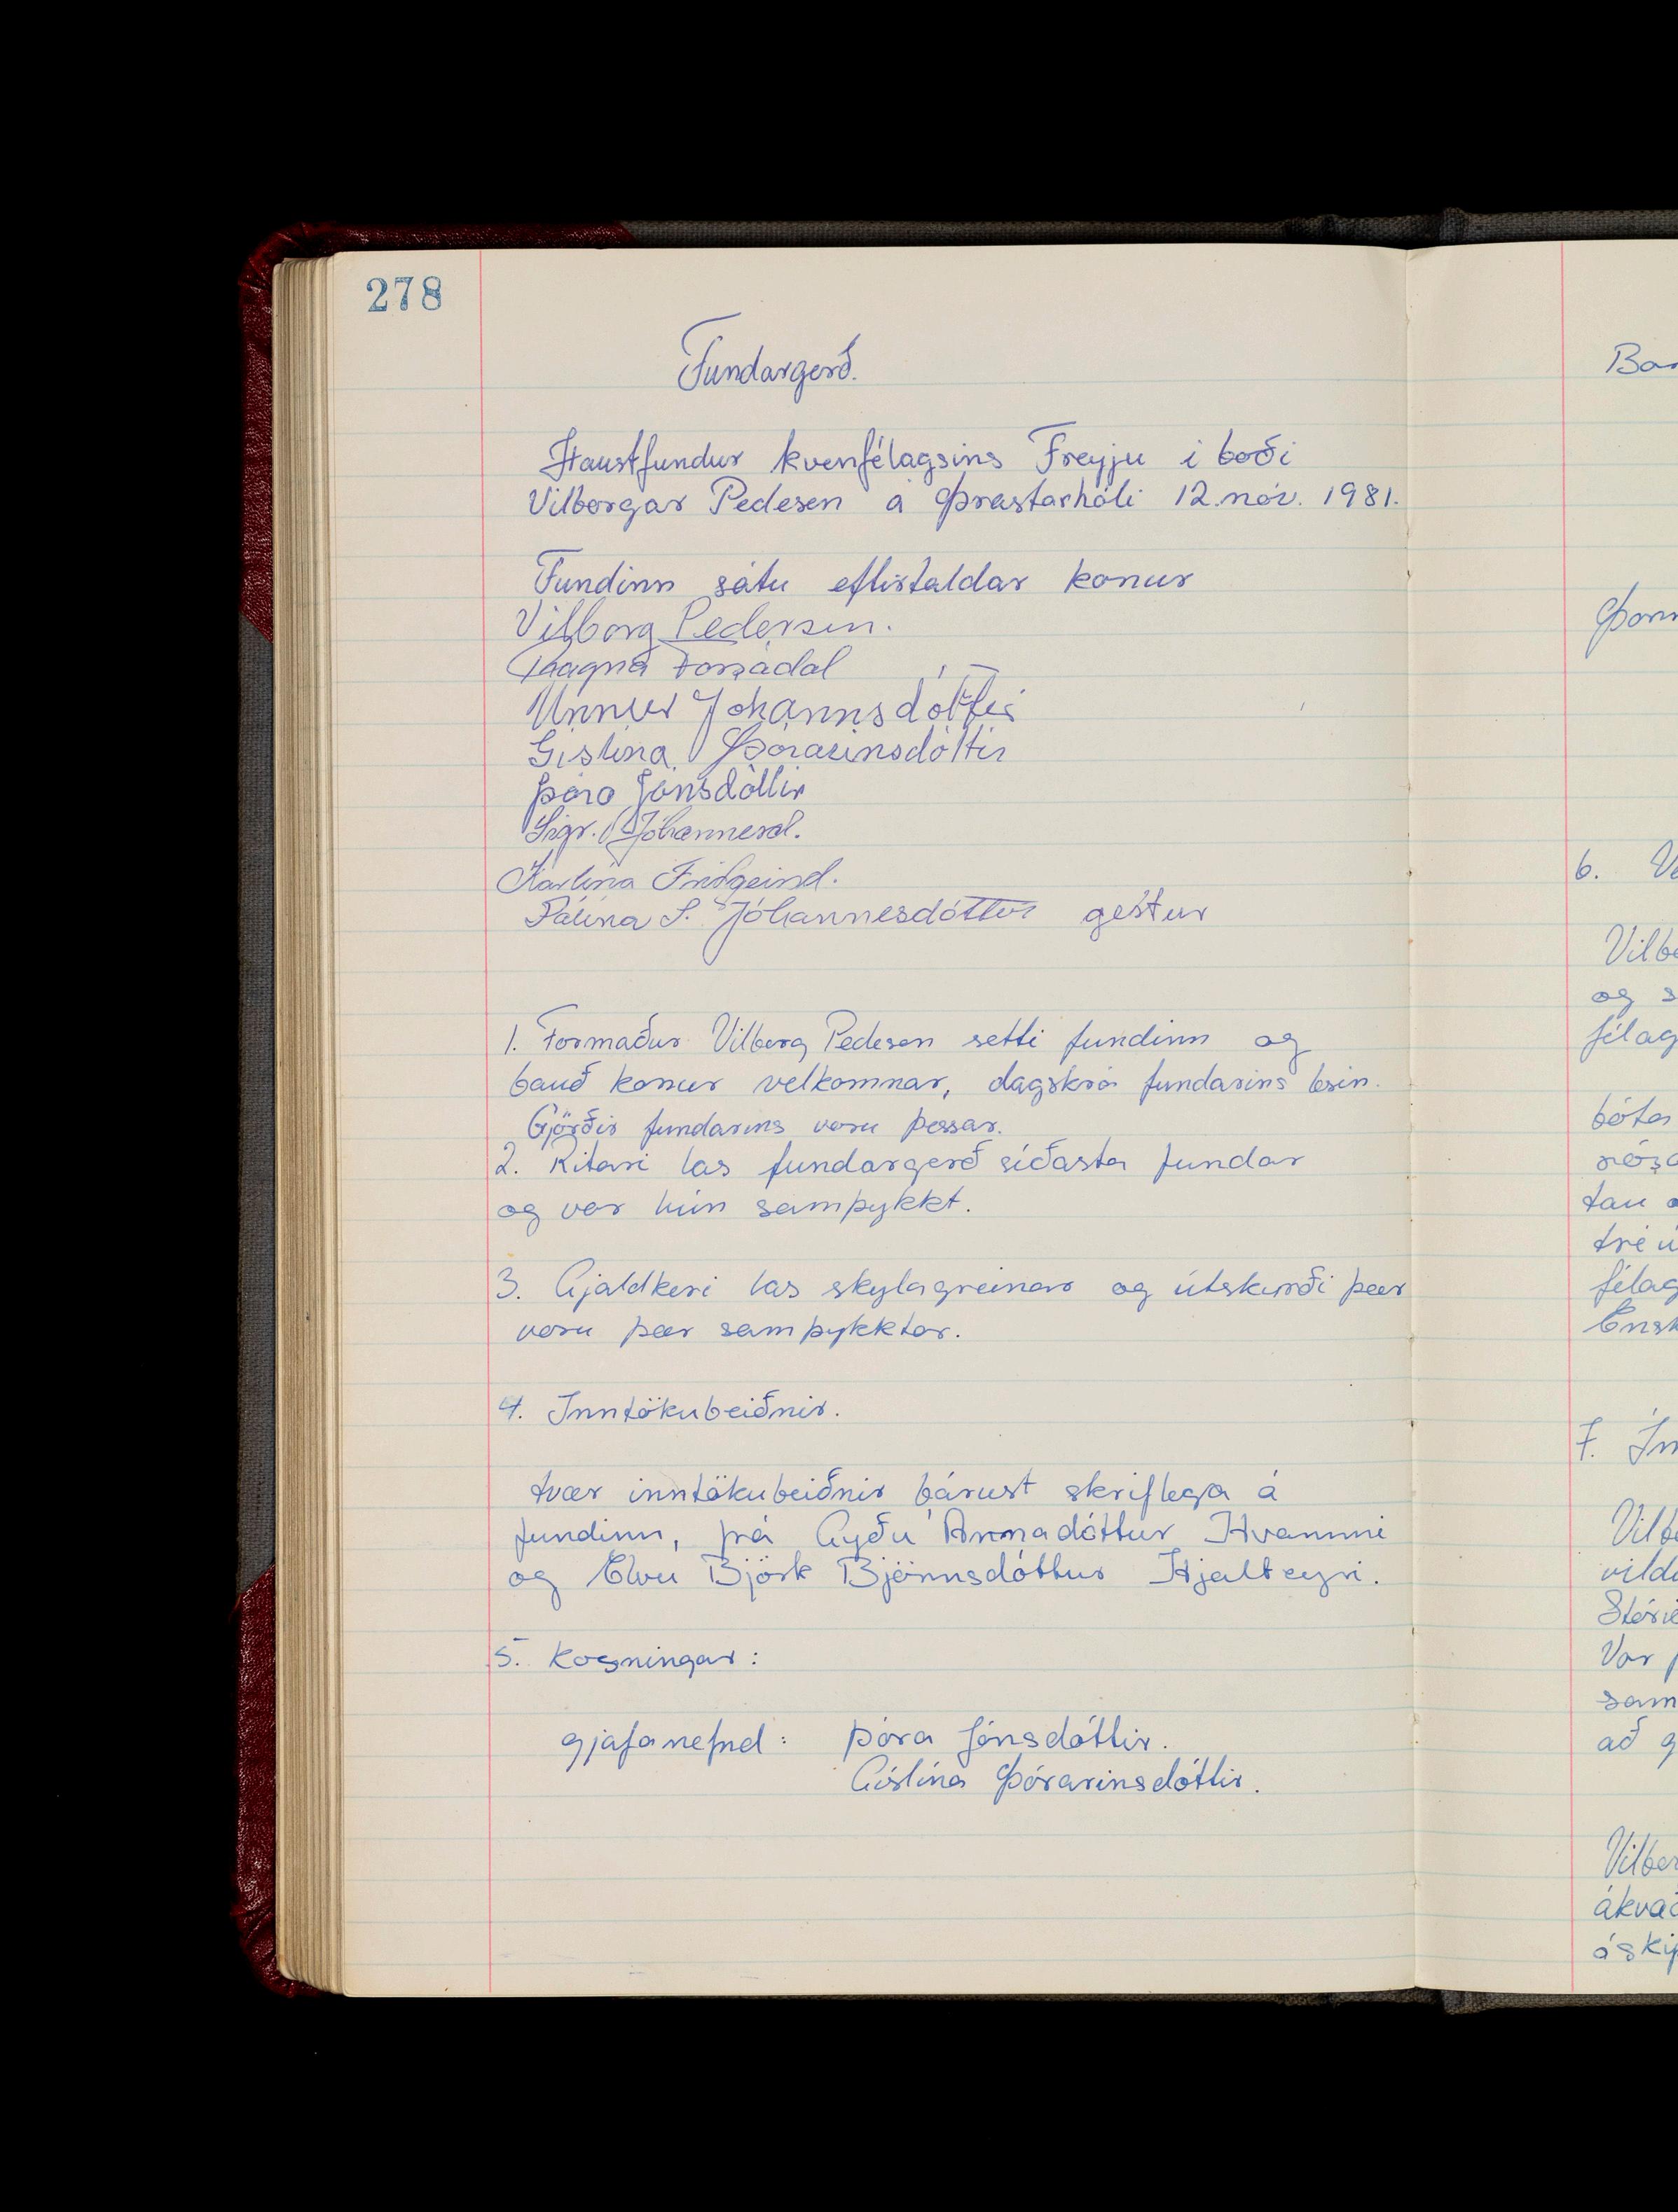 278
Fundargerð.
Haustfundur kvenfélagsins Freyju í boði
Vilborgar Pedesen á Þrastarhóli 12. nóv. 1981.
Fundinn sátu eftirtaldar konur
Vilborg Pedersen.
Magna Forsadal
Unnur Jóhannsdóttir
Gíslína Þórarinsdóttir
Þóra Jónsdóttir
Sigr. Jóhannesd.
Karlína Friðgeirsd.
Pálína S. Jóhannesdóttir gestur
1. Formaður Vilborg Pedesen setti fundinn og
bauð konur velkomnar, dagskrá fundarins lesin.
Gjörðir fundarins voru þessar.
2. Ritari las fundargerð síðasta fundar
og var hún samþykkt.
3. Gjaldkeri las skylagreinar og útskírði þær
voru þær samþykktar.
4. Inntökubeiðnir.
tvær inntökubeiðnir bárust skriflega á
fundinn, frá Gyðu Árnadóttur Hvammi
og Elvu Björk Björnsdóttur Hjalteyri.
5. Kosningar:
gjafanefnd: Þóra Jónsdóttir.
Gíslína Þórarinsdóttir.
6.
og
félag
7.
að